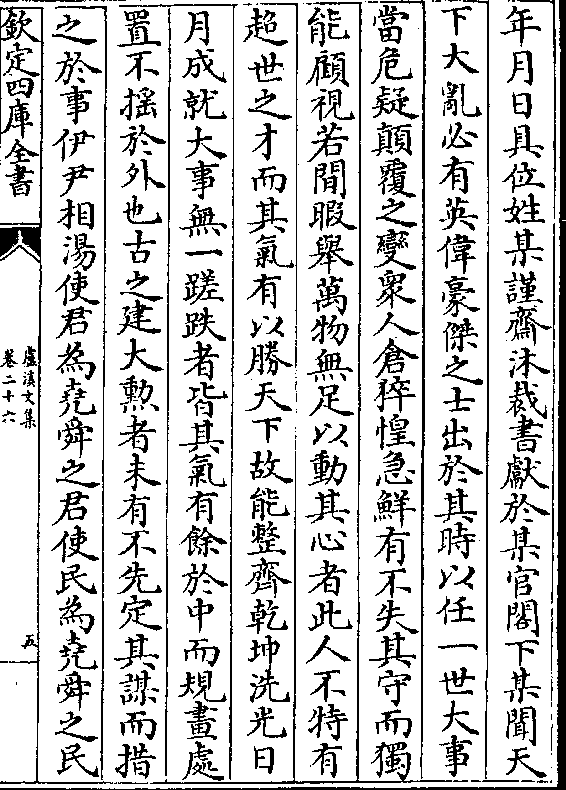 年月日具位姓某謹齋沐裁書獻於某官閣下某聞天
下大亂必有英偉豪傑之士出於其時以任一世大事
當危疑顛覆之變衆人倉猝惶急鮮有不失其守而獨
能顧視若閒暇舉萬物無足以動其心者此人不特有
超世之才而其氣有以勝天下故能整齊乾坤洗光日
月成就大事無一蹉跌者皆其氣有餘於中而規畫處
置不揺於外也古之建大勲者未有不先定其謀而措
之於事伊尹相湯使君為堯舜之君使民為堯舜之民
欽定四庫全書
盧溪文集
卷二十六
五